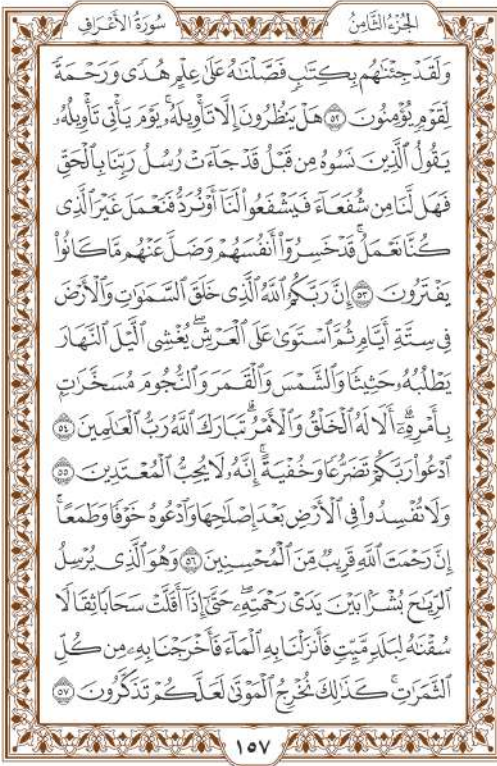 الجُزْءُ الثَّامِنُ
سُورَةُ الأَعْرَافِ
وَلَقَدْ جِئْنَٰهُم بِكِتَٰبٍ فَصَّلْنَٰهُ عَلَىٰ عِلْمٍ هُدًى وَرَحْمَةً
لِّقَوْمٍ يُؤْمِنُونَ ٥٢ هَلْ يَنظُرُونَ إِلَّا تَأْوِيلَهُۥۚ يَوْمَ يَأْتِي تَأْوِيلُهُۥ
يَقُولُ ٱلَّذِينَ نَسُوهُ مِن قَبْلُ قَدْ جَآءَتْ رُسُلُ رَبِّنَا بِٱلْحَقِّ
فَهَل لَّنَا مِن شُفَعَآءَ فَيَشْفَعُوا۟ لَنَآ أَوْ نُرَدُّ فَنَعْمَلَ غَيْرَ ٱلَّذِى
كُنَّا نَعْمَلُۚ قَدْ خَسِرُوٓا۟ أَنفُسَهُمْ وَضَلَّ عَنْهُم مَّا كَانُوا۟
يَفْتَرُونَ ٥٣ إِنَّ رَبَّكُمُ ٱللَّهُ ٱلَّذِى خَلَقَ ٱلسَّمَٰوَٰتِ وَٱلْأَرْضَ
فِى سِتَّةِ أَيَّامٍ ثُمَّ ٱسْتَوَىٰ عَلَى ٱلْعَرْشِۖ يُغْشِى ٱلَّيْلَ ٱلنَّهَارَ
يَطْلُبُهُۥ حَثِيثًا وَٱلشَّمْسَ وَٱلْقَمَرَ وَٱلنُّجُومَ مُسَخَّرَٰتٍۭ
بِأَمْرِهِۦٓۗ أَلَا لَهُ ٱلْخَلْقُ وَٱلْأَمْرُۗ تَبَارَكَ ٱللَّهُ رَبُّ ٱلْعَٰلَمِينَ ٥٤
ٱدْعُوا۟ رَبَّكُمْ تَضَرُّعًا وَخُفْيَةًۚ إِنَّهُۥ لَا يُحِبُّ ٱلْمُعْتَدِينَ ٥٥
وَلَا تُفْسِدُوا۟ فِى ٱلْأَرْضِ بَعْدَ إِصْلَٰحِهَا وَٱدْعُوهُ خَوْفًا وَطَمَعًاۚ
إِنَّ رَحْمَتَ ٱللَّهِ قَرِيبٌ مِّنَ ٱلْمُحْسِنِينَ ٥٦ وَهُوَ ٱلَّذِى يُرْسِلُ
ٱلرِّيَٰحَ بُشْرًۢا بَيْنَ يَدَىْ رَحْمَتِهِۦۖ حَتَّىٰٓ إِذَآ أَقَلَّتْ سَحَابًا ثِقَالًا
سُقْنَٰهُ لِبَلَدٍ مَّيِّتٍ فَأَنزَلْنَا بِهِ ٱلْمَآءَ فَأَخْرَجْنَا بِهِۦ مِن كُلِّ
ٱلثَّمَرَٰتِۚ كَذَٰلِكَ نُخْرِجُ ٱلْمَوْتَىٰ لَعَلَّكُمْ تَذَكَّرُونَ ٥٧
١٥٧